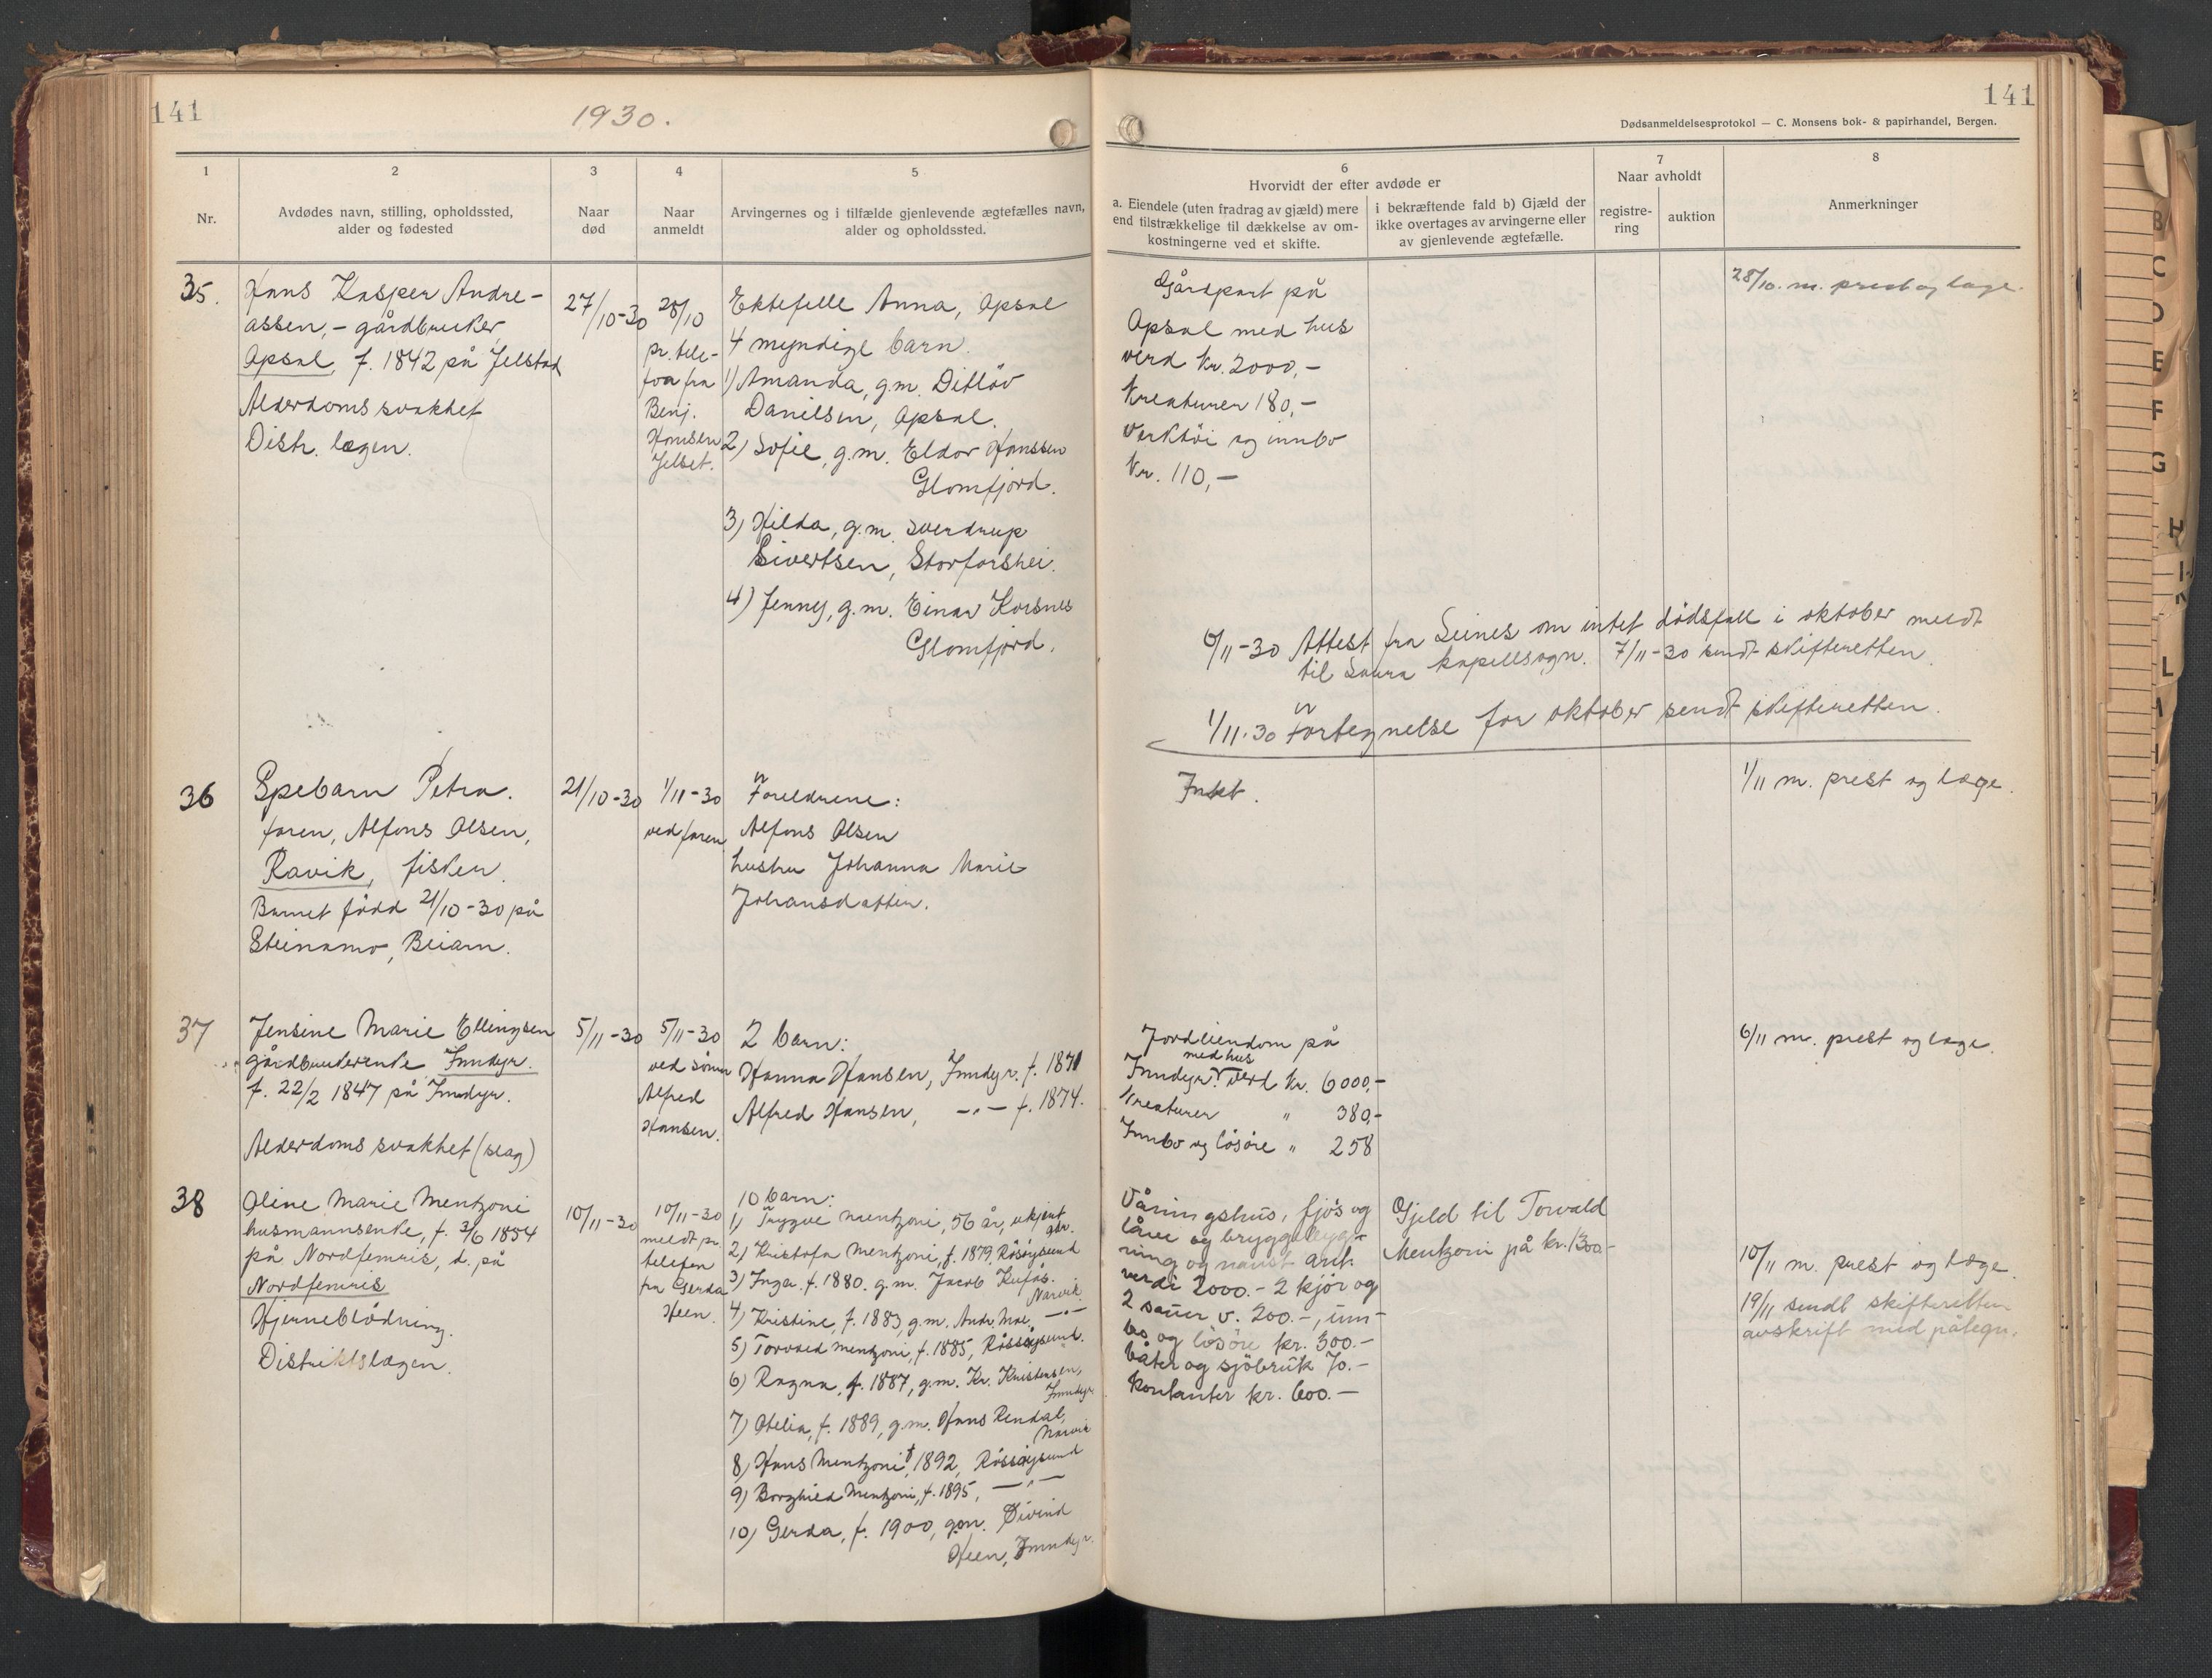 141
1930.
141
Dødsanmeldelsesprotokol — C. Monsens bok- & papirhandel, Bergen.
1
Nr.
2
Avdødes navn, stilling, opholdssted,
alder og fødested
3
Naar
død
4
Naar
anmeldt
5
Arvingernes og i tilfælde gjenlevende ægtefælles navn,
alder og opholdssted.
6
Hvorvidt der efter avdøde er
a. Eiendele (uten fradrag av gjæld) mere
end tilstrækkelige til dækkelse av om-
kostningerne ved et skifte.
i bekræftende fald b) Gjæld der
ikke overtages av arvingerne eller
av gjenlevende ægtefælle.
7
Naar avholdt
registre-
ring
auktion
8
Anmerkninger
35.
Hans Kasper Andre-
assen, - gårdbruker,
Opsal, f. 1842 på Jelstad
Alderdomssvakhet
Distr. lægen.
27/10-30
28/10
pr. tele-
fon fra
Benj.
Hansen
Jelset.
Ektefelle Anna, Opsal
4 myndige barn.
1) Amanda, g.m. Ditløv
Danielsen, Opsal.
2) Sofie, g.m. Eldor Hanssen
Glomfjord.
3) Hilda, g.m. Sverdrup
Sivertsen, Storforshei.
4) Jenny, g.m. Einar Korsnes
Glomfjord.
Gårdpart på
Opsal med hus
verd kr. 2000,-
Kreaturer 180,-
Verktöi og innbo
kr. 110,-
28/10. m. prest og læge.
6/11-30 Attest fra Seines om intet dödsfall i oktober meldt
til Saura kapellsogn. 7/11-30 sendt skifteretten.
1/11-30 Fortegnelse for oktober sendt skifteretten.
36
Spebarn Petra.
faren, Alfons Olsen,
Ravik, fisker.
Barnet född 21/10-30 på
Steinamo, Beiarn.
21/10-30
1/11-30
ved faren
Foreldrene:
Alfons Olsen
hustru Johanna Marie
Johansdatter.
Intet.
1/11 m. prest og læge.
37
Jensine Marie Ellingsen
gårdbrukerenke Inndyr.
f. 22/2 1847 på Inndyr.
Alderdomssvakhet (slag)
5/11-30
5/11-30
ved sönn
Alfred
Hansen.
2 barn:
Hanna Hansen, Inndyr. f. 1871
Alfred Hansen, -"- f. 1874.
Jordeiendom på
med hus
Inndyr. verd kr. 6000,-
Kreaturer " 380,-
Innbo og lösöre " 258
6/11 m. prest og læge.
38
Oline Marie Mentzoni
husmannsenke, f. 3/6 1854
på Nordfemris, d. på
Nordfemris
Hjerneblödning.
Distriktslægen.
10/11-30
10/11-30
meldt pr.
telefon
fra Gerda
Heen.
10 barn:
1) Trygve Mentzoni, 56 år, ukjent
adr.
2) Kristofa Mentzoni, f. 1879, Rössöysund
3) Inga. f. 1880. g.m. Jacob
Narvik.
4) Kristine, f. 1883, g.m. Andr. Moe, -"-
5) Torvald Mentzoni, f. 1885, Rössöysund.
6) Ragna, f. 1887, g.m. Kr. Kristensen,
Inndyr
7) Otelia, f. 1889, g.m. Hans Rendal,
Narvik
8) Hans Mentzoni, f. 1892, Rössöysund
9) Borghild Mentzoni, f. 1895, -"-
10) Gerda, f. 1900, g.m. Øivind
Heen, Inndyr.
Våningshus, fjös og
låve og bryggebygg-
ning og naust ant.
verdi 2000.- 2 kjör og
2 sauer v. 200.-, inn-
bo og lösöre kr. 300.-
båter og sjöbruk 70.-
Kontanter kr. 600.-
Gjeld til Torvald
Mentzoni på kr. 1300.-
10/11 m. prest og læge.
19/11 sendt skifteretten
avskrift med påtegn.
B
C
D
E
F
G
H
I
K
L